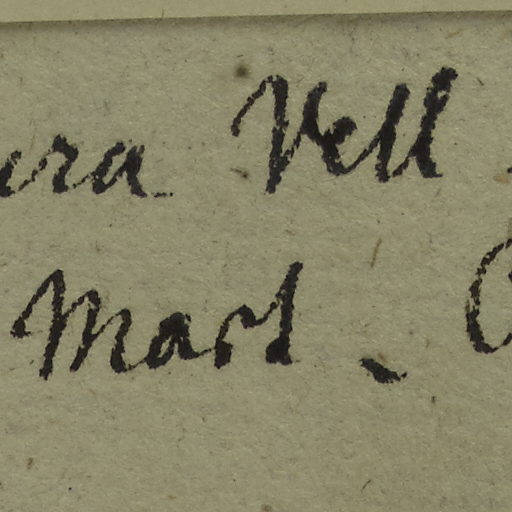 ura Vell
Mart.